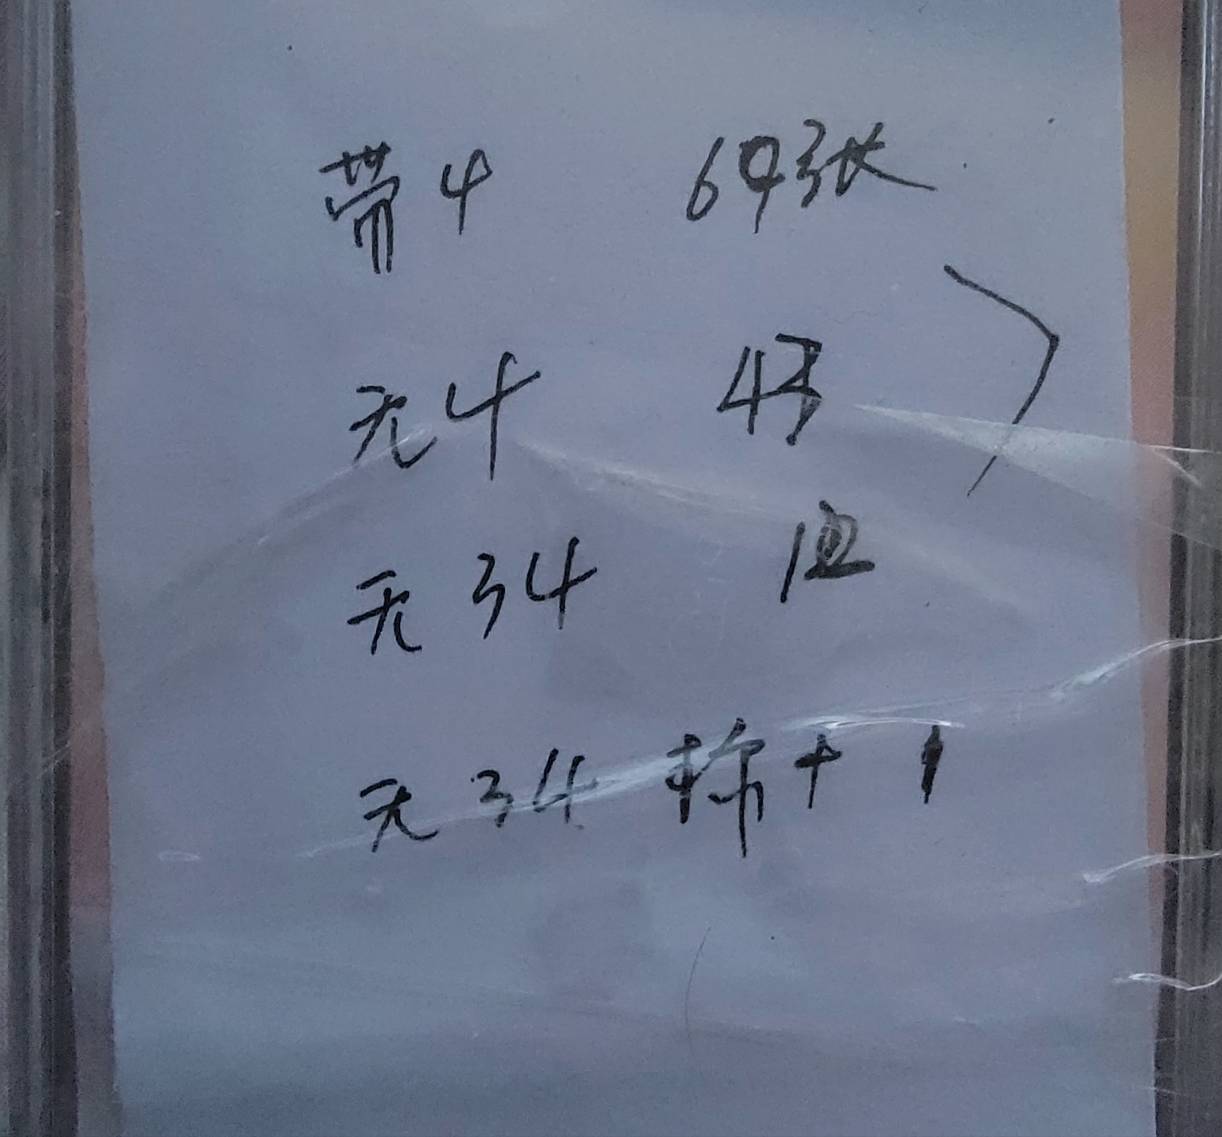 带4 69张
无4 43
无34 12
无34 标十1